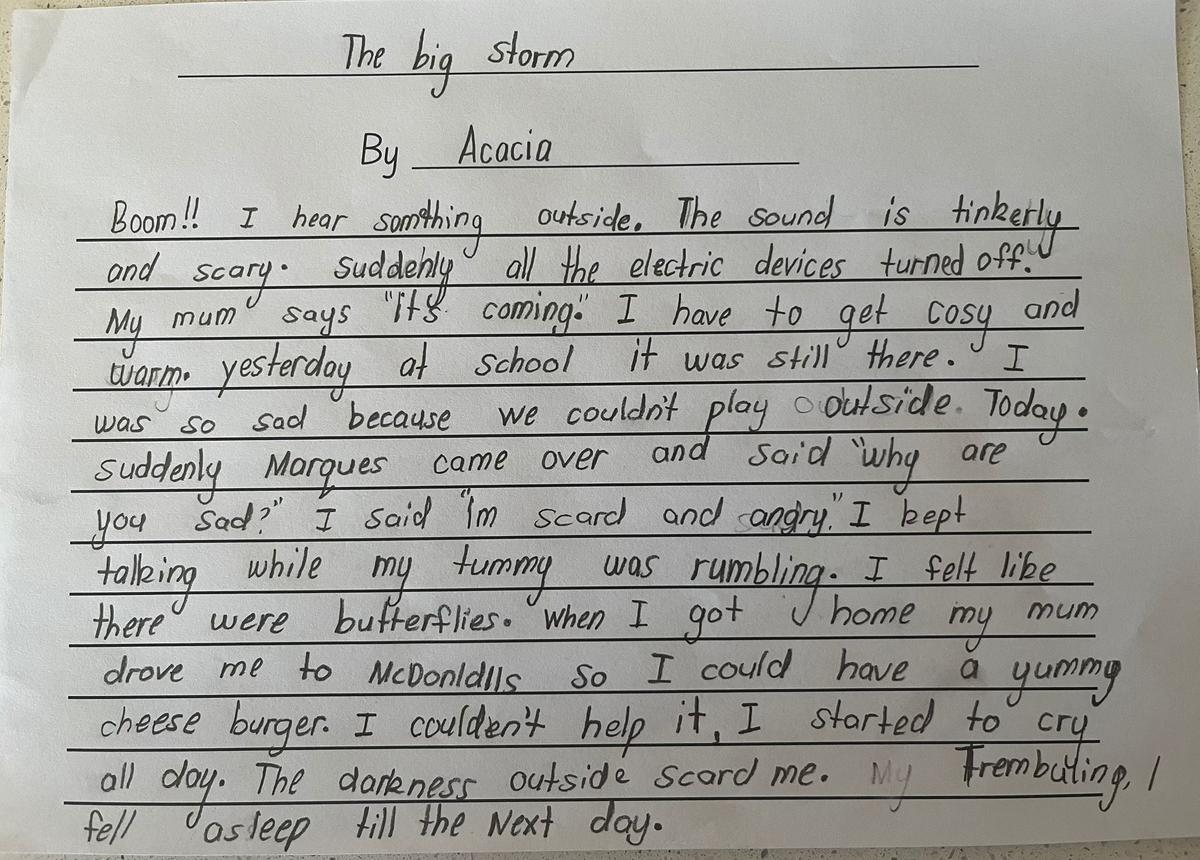 The big storm
By Acacia
Boom!! I hear somthing outside. The sound is tinkerly
and scary. Suddenly all the electric devices turned off.
My mum says "it's coming." I have to get cosy and
warm. yesterday at school it was still there. I
was so sad because we couldn't play outside. Today.
suddenly Marques came over and said "why are
you sad?" I said "Im scard and angry." I kept
talking while my tummy was rumbling. I felt like
there were butterflies. When I got home my mum
drove me to McDonldlls so I could have a yummy
cheese burger. I coulden't help it, I started to cry
all day. The darkness outside scard me. My Trembuling, I
fell asleep till the Next day.